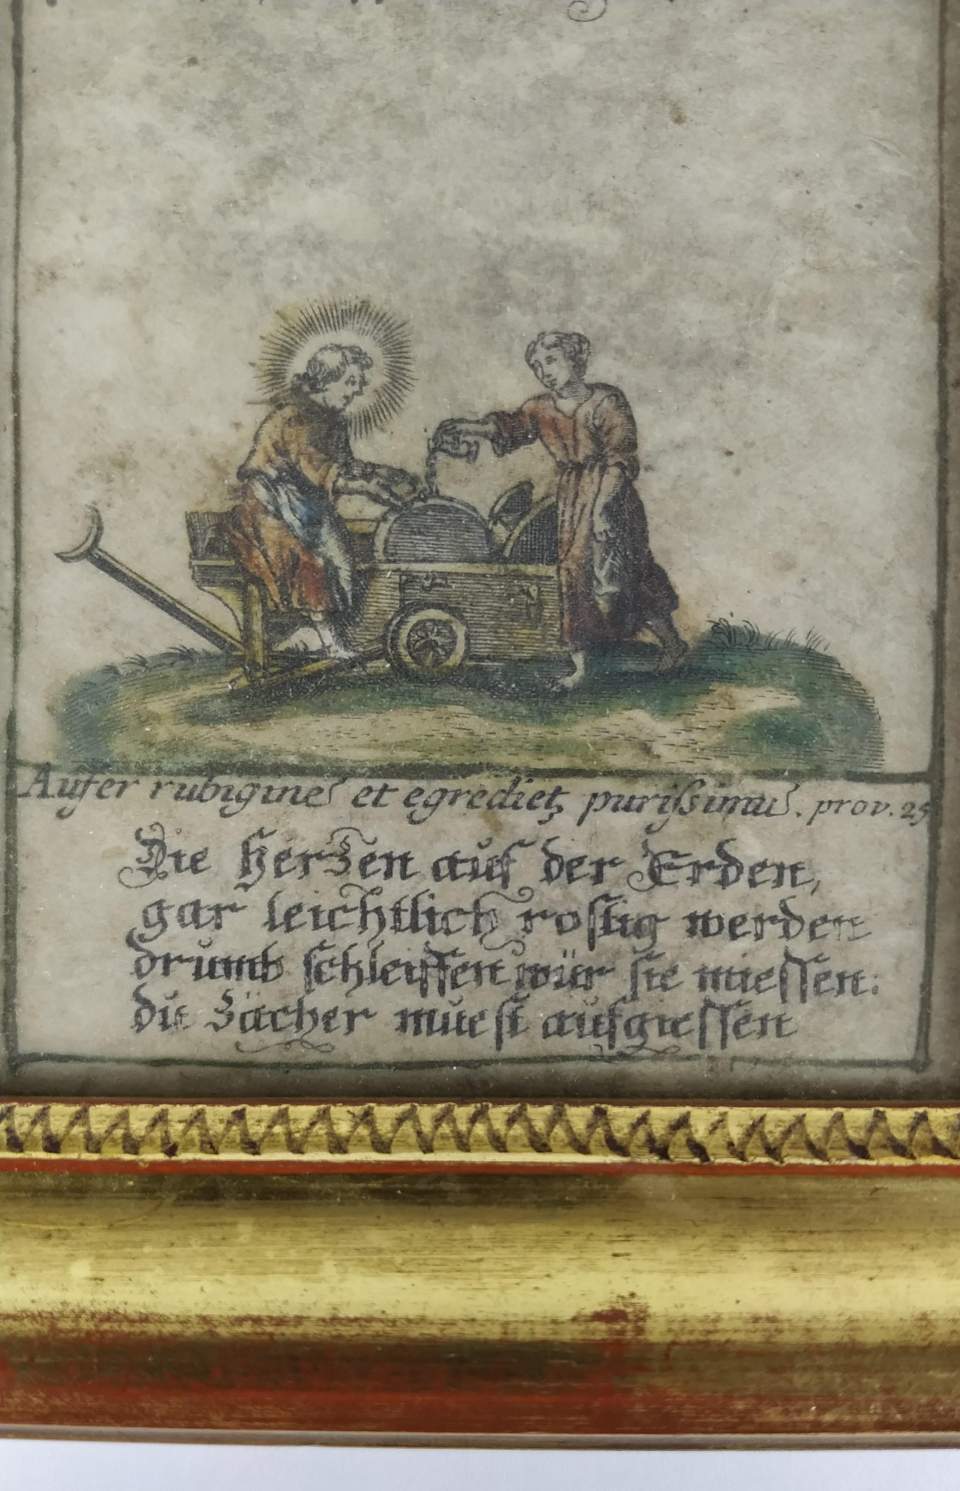 Aufer rubigine et egrediet, purissimu. prov. 25
Die Herzen auf der Erden,
gar leichtlich rostig werden
drumb schleiffen wür sie miessen:
du Zächer muest aufgiessen